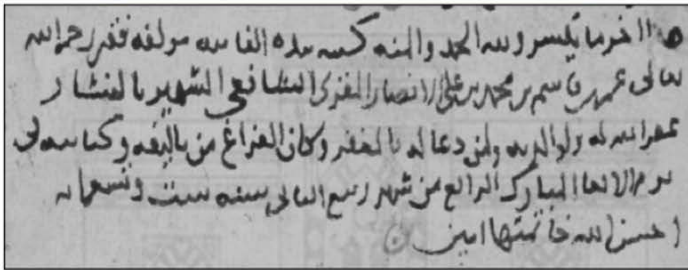 هذا اخر ما تيسر ولله الحمد والمنه كتبه بيده الفانيه مولفه فقير رحمة الله
تعالى عمر بن قاسم بن محمد بن علي الانصاري المقرى الشافعي الشهير بالنشار
غفر الله له ولوالديه ولمن دعا له بالمغفره وكان الفراغ من تاليفه وكتابته في
يوم الاربعا المبارك الرابع من شهر ربيع الثاني سنه ست وتسعمايه
احسن الله خاتمتها امين